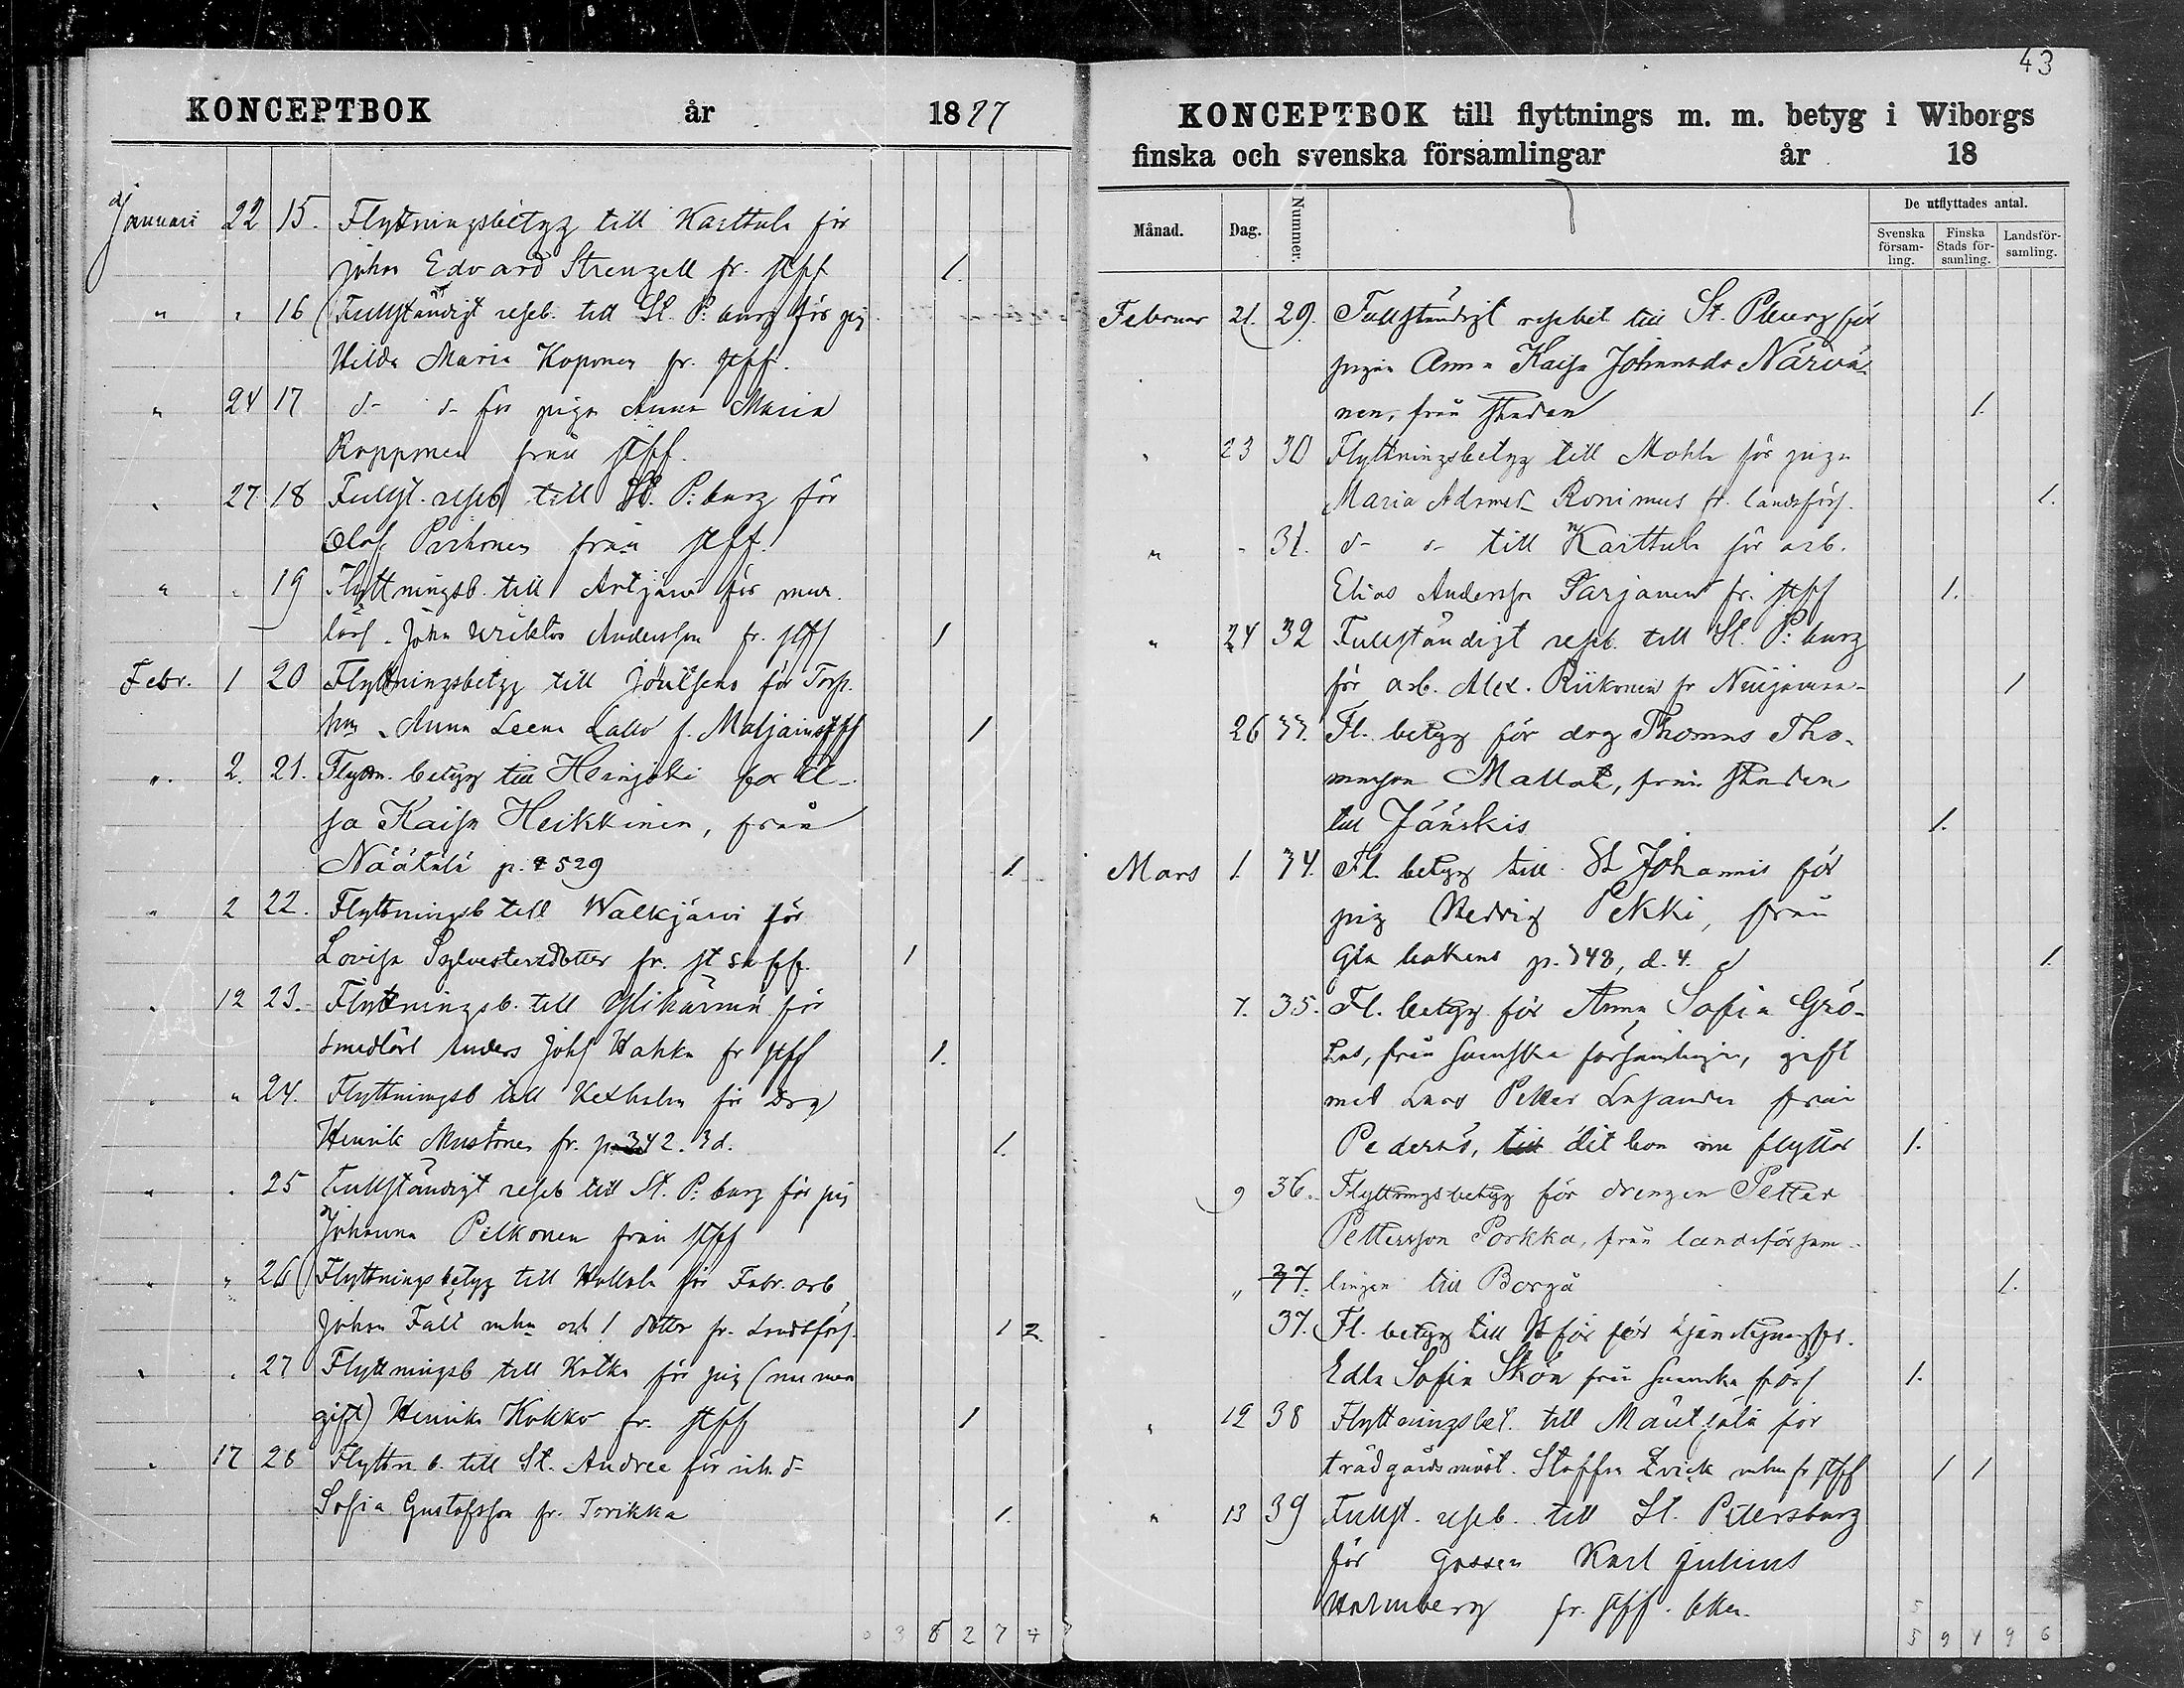 KONCEPTBOK år 1877
Januari 22 15. Flyttningsbetyg till Karttula för
Johan Edvard Strenzell fr. stff 1.
" " 16 (Fullständigt reseb. till St. P:burg för pig
Hilda Maria Koponen fr. stff.
" 24 17 d- d- för pigan Anna Maria
Ropponen från stff.
" 27 18 Fullst. reseb till St. P:burg för
Olof Pirhonen från stff.
" " 19 Flyttningsb. till Artjärvi för mur.
lärl. Johan Viktor Andersson fr. stff 1
Febr. 1 20 Flyttningsbetyg till Joutseno för Torp.
hm Anna Leena Lallo f. Maljain stff 1
" 2. 21. Flyttn. betyg till Heinjoki för El-
sa Kaisa Heikkinen, från
Näätälä p. 529 1.
" 2 22. Flyttningsb till Walkjärvi för
Lovisa Sylvestersdotter fr. st sv ff. 1
" 12 23. Flyttningsb. till Ylihärmä för
smedlärl Anders Johs Hakka fr stff 1.
" " 24. Flyttningsb till Kexholm för Drg
Henrik Mustonen fr. p. 342. 3d. 1.
" " 25 Fullständigt reseb till St. P:burg för pig
Johanna Pelkonen från stff
" " 26 Flyttningsbetyg till Hollola för Fabr. arb
Johan Fält mhu och 1 dotter fr. Landsförs. 1 2
" " 27 Flyttningsb till Kotka för pig (numera
gift) Henrika Kokko fr. stff 1
" 17 28 Flyttn. b. till St. Andree för inh. d-
Sofia Gustafsson fr. Torikka 1.
3 8 2 7 4
43
KONCEPTBOK till flyttnings m. m. betyg i Wiborgs
finska och svenska församlingar år 18
Månad. Dag. Nummer. De utflyttades antal.
Svenska försam-ling. Finska Stads för-samling. Landsför-samling.
Februar 21. 29. Fullständigt resebet till St. Pburg för
pigan Anna Kaisa Johansdr Närvä-
nen, från staden 1.
" 23 30 Flyttningsbetyg till Mohla för pigan
Maria Adamsd. Ronimus fr. landsförs. 1.
" " 31. d- d- till Karttula för arb.
Elias Andersson Tarjanen fr. stff 1.
" 24 32 Fullständigt reseb. till St. P:burg
för arb. Alex. Riikonen fr Nuijamaa- 1
26 33. Fl. betyg för drg Thomas Tho-
masson Mallat, från staden
till Jääskis 1.
Mars 1. 34. Fl. betyg till St Johannis för
pig Hedvig Pekki, från
Gla hakens p. 348, d. 4. 1.
7. 35. Fl. betyg för Anna Sofia Grö-
, från svenska församlingen, gift
med Lars Petter från
Pedersö, till dit hon nu flyttar 1.
9 36. Flyttningsbetyg för drengen Petter
Pettersson Porkka, från landsförsam-
" 37. lingen till Borgå 1.
37. Fl. betyg till H:fors för tjänstejungfr.
Edla Sofia Skön från svenska förs 1.
" 12 38 Flyttningsbet. till Mäntsälä för
trädgårdsmäst. Staffan Zvick mhu fr stff 1 1
" 13 39 Fullst. reseb. till St. Petersburg
för gossen Karl Julius
Holmberg fr. stff.
5
5 9 4 9 6